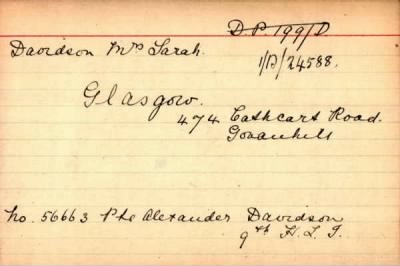 D.P. 199/D
Davidson Mrs Sarah.
1/D/24588.
Glasgow.
474 Cathcart Road.
Govanhill
No. 56663 Pte Alexander Davidson
9th H.L.I.